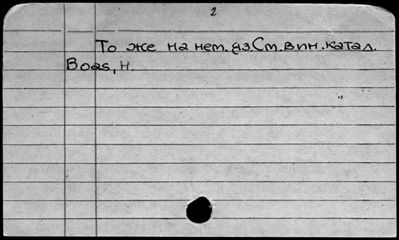 2
То же на нем.яз.См.в ин.катал.
Boas, H.